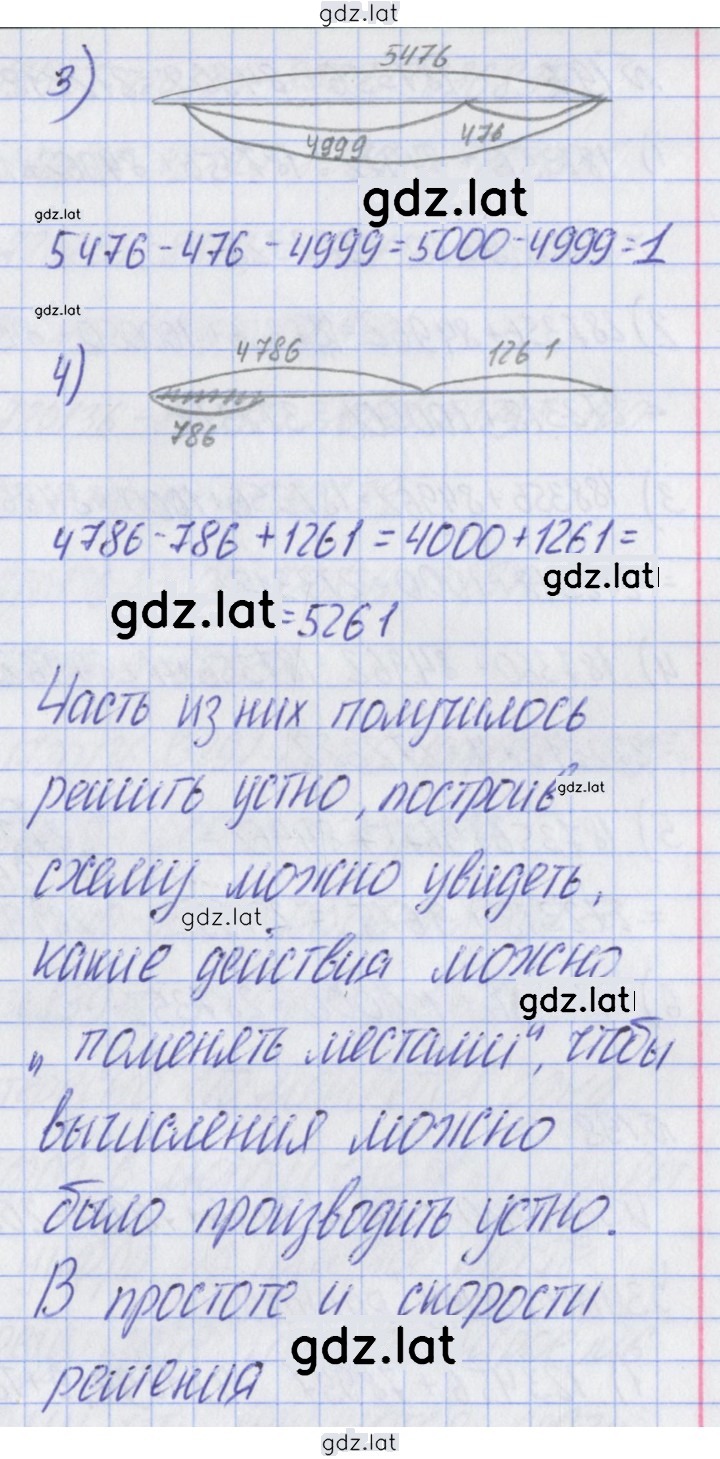 gdz.lat
3)
5476
4999 476
gdz.lat
gdz.lat
5476 - 476 - 4999 = 5000 - 4999 = 1
gdz.lat
4)
4786 1261
786
4786 - 786 + 1261 = 4000 + 1261 =
gdz.lat
gdz.lat = 5261
Часть из них получилось
решить устно, построив
gdz.lat
схему можно увидеть,
gdz.lat
какие действия можно
gdz.lat
„поменять местами“, чтобы
вычисления можно
было производить устно.
В простоте и скорости
gdz.lat
решения
gdz.lat